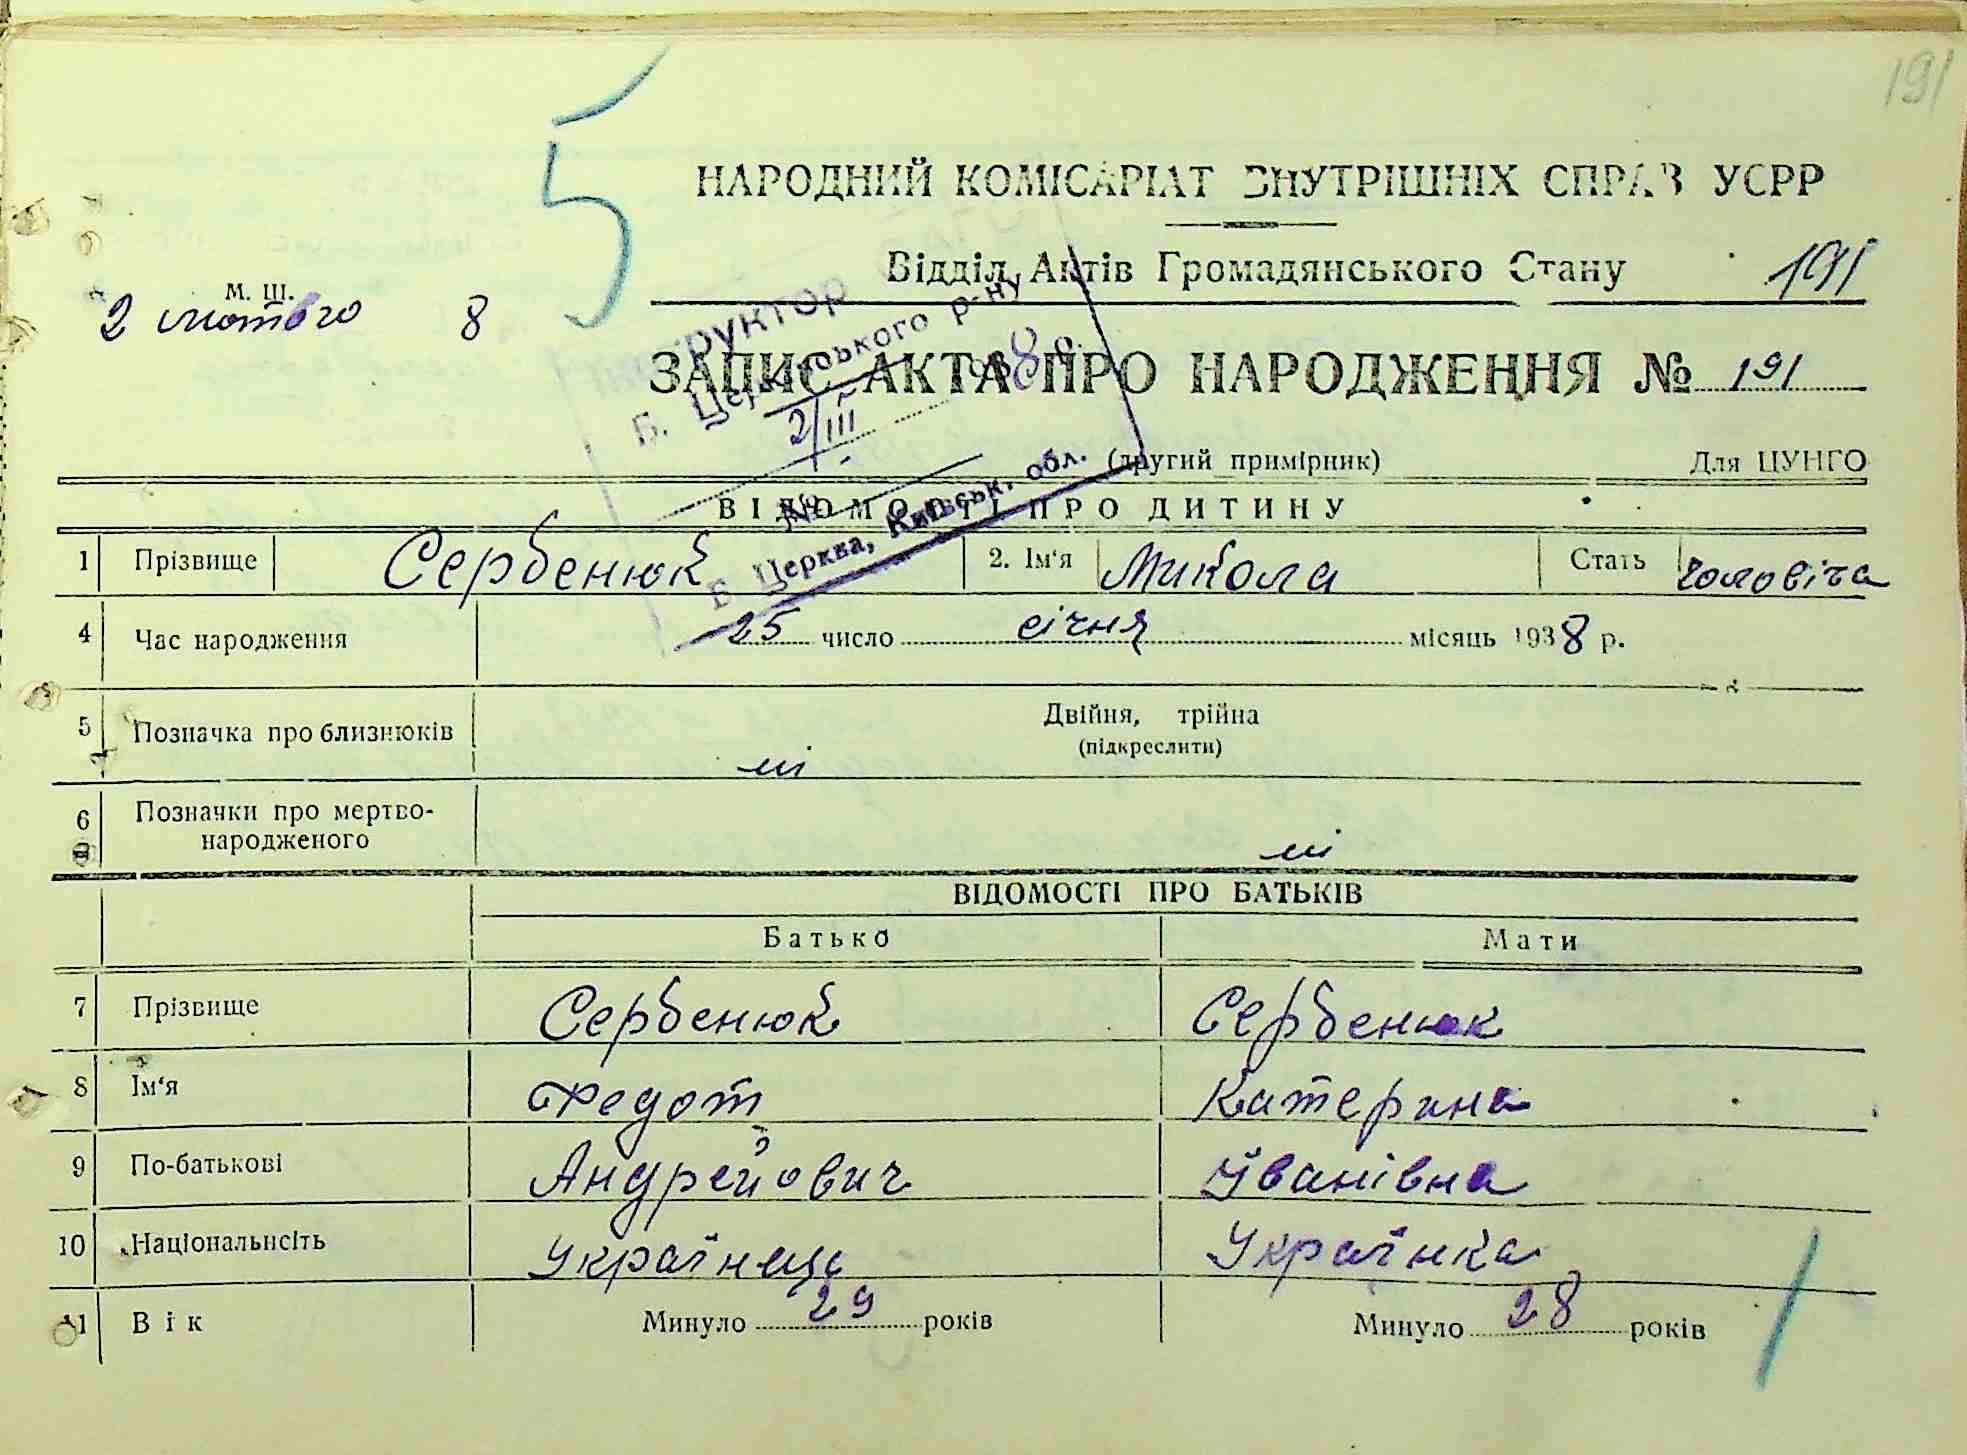 191
5
НАРОДНИЙ КОМІСАРІАТ ВНУТРІШНІХ СПРАВ УСРР
Відділ Актів Громадянського Стану 191
М. Ш.
2 лютого 8
ЗАПИС АКТА ПРО НАРОДЖЕННЯ № 191
руктор
Б. Церківського р-ну
2/III 1938 р.
№
Б Церква, Київськ. обл.
(другий примірник) Для ЦУНГО
ВІДОМОСТІ ПРО ДИТИНУ
1 Прізвище Сербенюк 2. Ім'я Микола Стать чоловіча
4 Час народження 25 число січня місяць 1938 р.
5 Позначка про близнюків Двійня, трійна
(підкреслити)
ні
6 Позначки про мертво-
народженого
ні
ВІДОМОСТІ ПРО БАТЬКІВ
Батько Мати
7 Прізвище Сербенюк Сербенюк
8 Ім'я Федот Катерина
9 По-батькові Андрейович Іванівна
10 Національність Українець Українка
11 Вік Минуло 29 років Минуло 28 років